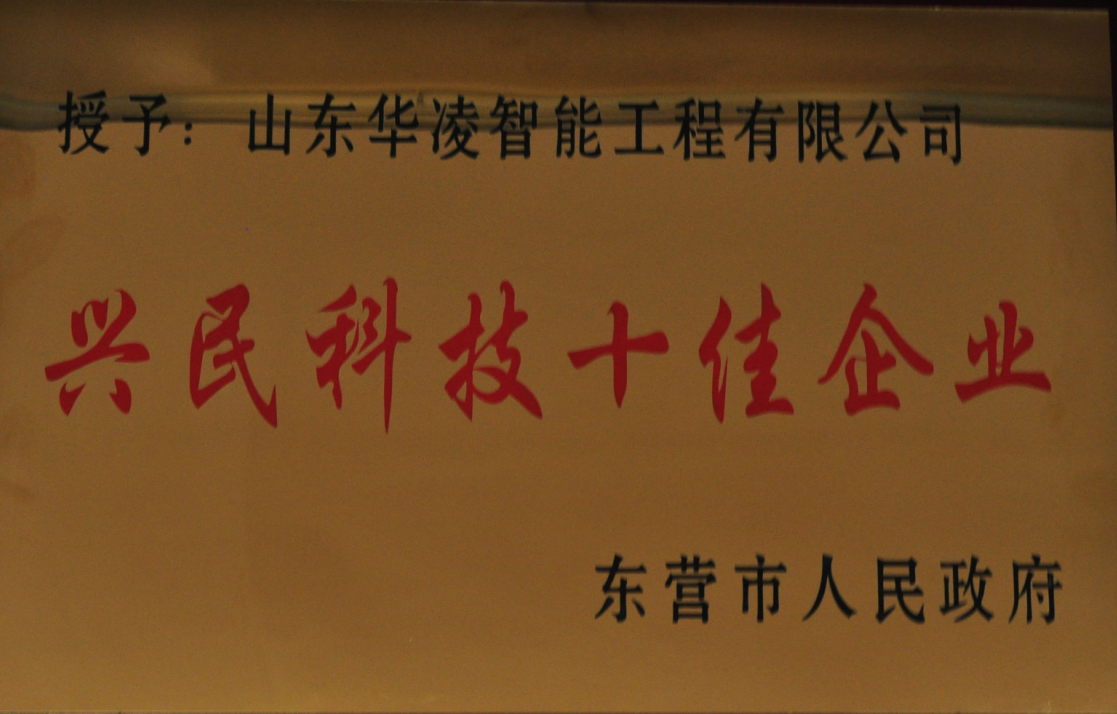 授予：山东华凌智能工程有限公司
兴民科技十佳企业
东营市人民政府